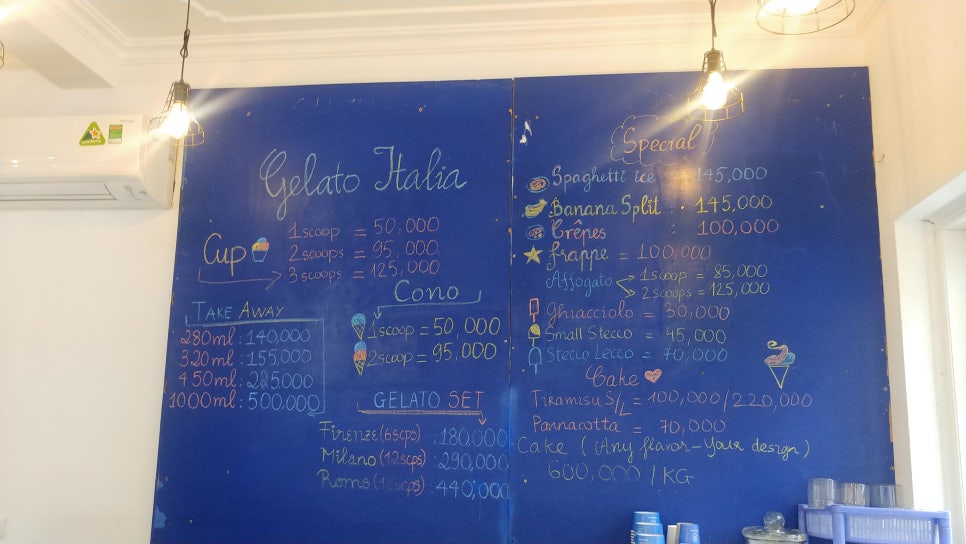 Gelato Italia
Cup
1 scoop = 50,000
2 scoops = 95,000
3 scoops = 125,000
Cono
1 scoop = 50,000
2 scoop = 95,000
TAKE AWAY
280ml : 140,000
320ml : 155,000
450ml : 225,000
1000ml : 500,000
GELATO SET
Firenze (6scps) : 180,000
Milano (12scps) : 290,000
Roma : 440,000
Special
Spaghetti ice 145,000
Banana Split : 145,000
Crêpes : 100,000
frappe = 100,000
Affogato
1 scoop = 85,000
2 scoops = 125,000
Ghiacciolo = 30,000
Small Stecco = 45,000
Stecco Lecco = 70,000
Cake
Tiramisu S/L = 100,000/220,000
Pannacotta = 70,000
Cake (Any flavor - Your design)
600,000/KG